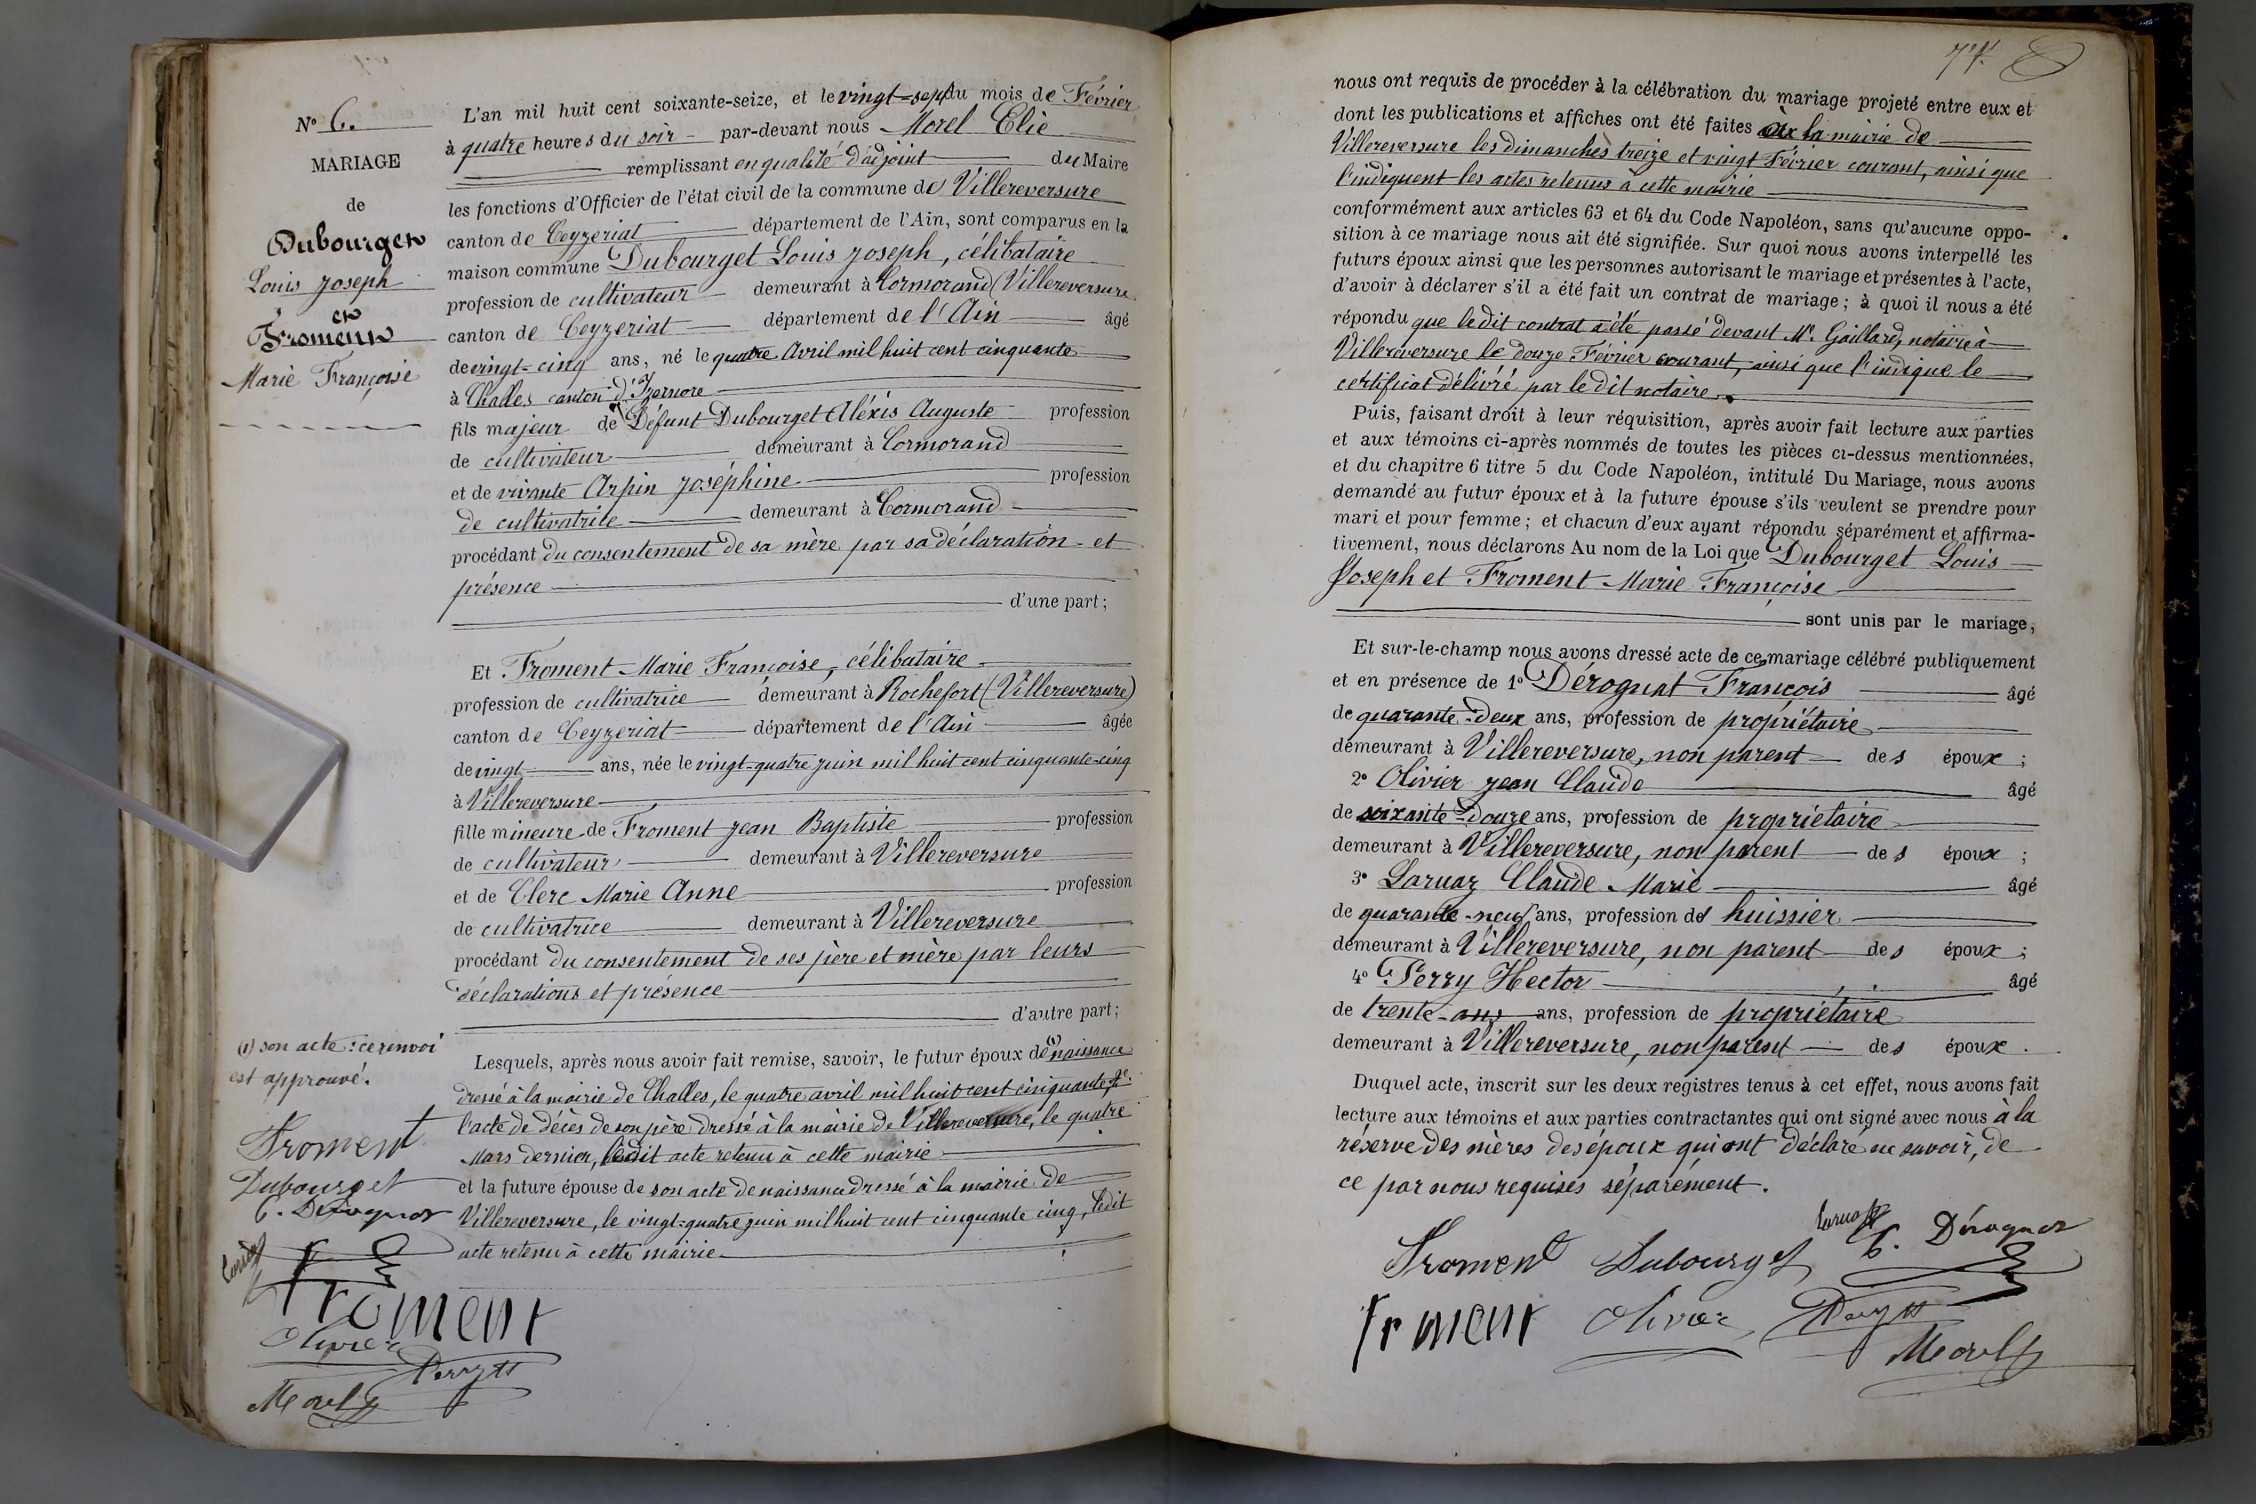 N° 6.
MARIAGE
de
Dubourget
Louis Joseph
et
Froment
Marie Françoise
L'an mil huit cent soixante-seize, et le vingt-sept du mois de Février
à quatre heures du soir par-devant nous Morel Elie
remplissant en qualité d'adjoint du Maire
les fonctions d'Officier de l'état civil de la commune de Villereversure
canton de Ceyzeriat département de l'Ain, sont comparus en la
maison commune Dubourget Louis Joseph, célibataire
profession de cultivateur demeurant à Cormorand (Villereversure
canton de Ceyzeriat département de l'Ain âgé
de vingt-cinq ans, né le quatre Avril mil huit cent cinquante
à Challes canton d'Izernore
fils majeur de Défunt Dubourget Aléxis Auguste profession
de cultivateur demeurant à Cormorand
et de vivante Arpin Joséphine profession
de cultivatrice demeurant à Cormorand
procédant du consentement de sa mère par sa déclaration et
présence
d'une part;
Et Froment Marie Françoise, célibataire
profession de cultivatrice demeurant à Rochefort (Villereversure)
canton de Ceyzeriat département de l'Ain âgée
de vingt ans, née le vingt-quatre juin mil huit cent cinquante-cinq
à Villereversure
fille mineure de Froment Jean Baptiste profession
de cultivateur demeurant à Villereversure
et de Clerc Marie Anne profession
de cultivatrice demeurant à Villereversure
procédant du consentement de ses père et mère par leurs
déclarations et présence
d'autre part;
Lesquels, après nous avoir fait remise, savoir, le futur époux de (1) naissance
dressé à la mairie de Challes, le quatre avril mil huit cent cinquante
l'acte de décès de son père dressé à la mairie de Villereversure, le quatre
Mars dernier, ledit acte retenu à cette mairie
et la future épouse de son acte de naissance dressé à la mairie de
Villereversure, le vingt-quatre juin mil huit cent cinquante cinq, ledit
acte retenu à cette mairie
(1) son acte : ce renvoi
est approuvé.
Froment
Dubourget
Derognat
Froment
Olivier
Perry
Morel
nous ont requis de procéder à la célébration du mariage projeté entre eux et
dont les publications et affiches ont été faites à la mairie de
Villereversure les dimanches treize et vingt Février courant, ainsi que
l'indiquent les actes retenus à cette mairie
conformément aux articles 63 et 64 du Code Napoléon, sans qu'aucune oppo-
sition à ce mariage nous ait été signifiée. Sur quoi nous avons interpellé les
futurs époux ainsi que les personnes autorisant le mariage et présentes à l'acte,
d'avoir à déclarer s'il a été fait un contrat de mariage; à quoi il nous a été
répondu que ledit contrat a été passé devant Me. Gaillard, notaire à
Villereversure le douze Février courant, ainsi que l'indique le
certificat délivré par le dit notaire.
Puis, faisant droit à leur réquisition, après avoir fait lecture aux parties
et aux témoins ci-après nommés de toutes les pièces ci-dessus mentionnées,
et du chapitre 6 titre 5 du Code Napoléon, intitulé Du Mariage, nous avons
demandé au futur époux et à la future épouse s'ils veulent se prendre pour
mari et pour femme; et chacun d'eux ayant répondu séparément et affirma-
tivement, nous déclarons Au nom de la Loi que Dubourget Louis
Joseph et Froment Marie Françoise
sont unis par le mariage,
Et sur-le-champ nous avons dressé acte de ce mariage célébré publiquement
et en présence de 1° Dérognat François âgé
de quarante-deux ans, profession de propriétaire
demeurant à Villereversure, non parent des époux;
2° Olivier Jean Claude âgé
de soixante-douze ans, profession de propriétaire
demeurant à Villereversure, non parent des époux;
3° Laruaz Claude Marie âgé
de quarante-neuf ans, profession de huissier
demeurant à Villereversure, non parent des époux;
4° Perry Hector âgé
de trente ans ans, profession de propriétaire
demeurant à Villereversure, non parent des époux.
Duquel acte, inscrit sur les deux registres tenus à cet effet, nous avons fait
lecture aux témoins et aux parties contractantes qui ont signé avec nous à la
réserve des mères des époux qui ont déclaré ne savoir, de
ce par nous requises séparément.
Froment Dubourget Laruaz Dérognat
Froment Olivier Perry
Morel